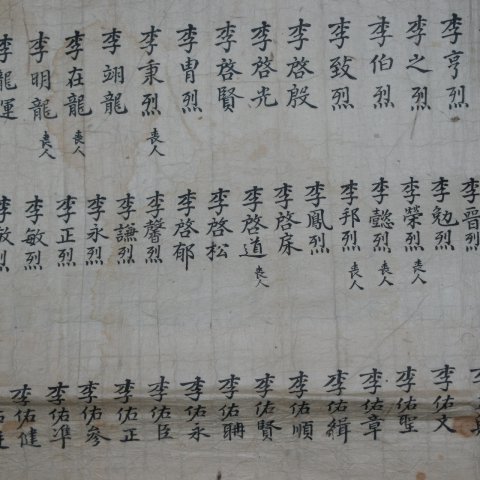 李亨烈
李之烈
李伯烈
李致烈
李啓殷
李啓光
李啓賢
李冑烈
李秉烈 喪人
李翊龍
李在龍 喪人
李明龍 喪人
李龍運
李晉烈
李勉烈
李榮烈 喪人
李懿烈 喪人
李邦烈 喪人
李鳳烈
李啓床
李啓道 喪人
李啓松
李啓郁
李馨烈
李謙烈
李永烈
李正烈
李敏烈
李敏烈
李佑文
李佑聖
李佑章
李佑緝
李佑順
李佑賢
李佑聃
李佑永
李佑臣
李佑正
李佑參
李佑準
李佑健